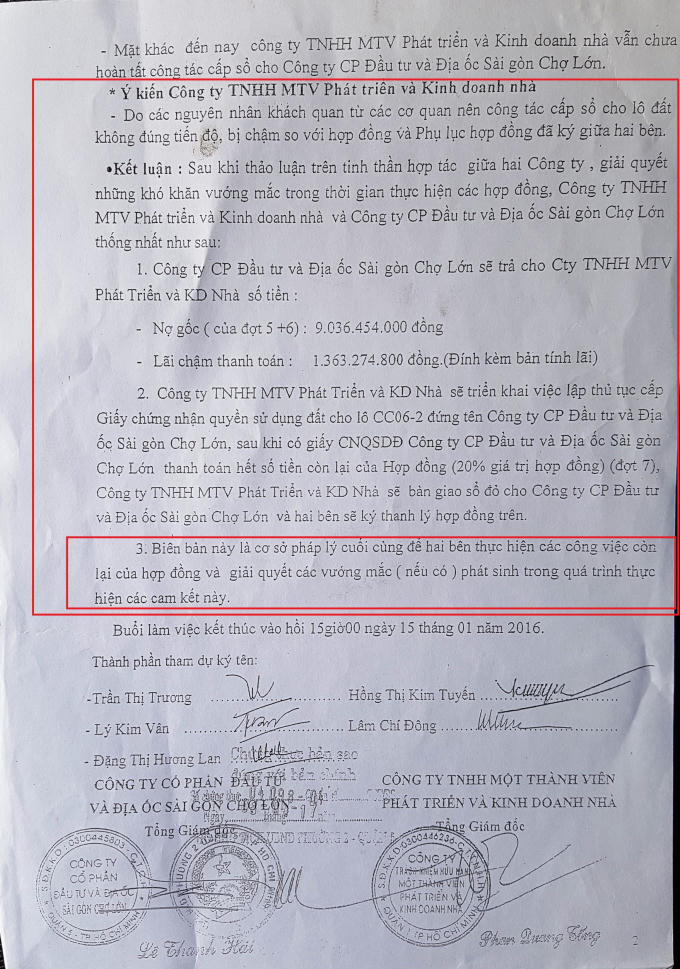 - Mặt khác đến nay công ty TNHH MTV Phát triển và Kinh doanh nhà vẫn chưa
hoàn tất công tác cấp sổ cho Công ty CP Đầu tư và Địa ốc Sài gòn Chợ Lớn.
* Ý kiến Công ty TNHH MTV Phát triển và Kinh doanh nhà
- Do các nguyên nhân khách quan từ các cơ quan nên công tác cấp sổ cho lô đất
không đúng tiến độ, bị chậm so với hợp đồng và Phụ lục hợp đồng đã ký giữa hai bên.
•Kết luận : Sau khi thảo luận trên tinh thần hợp tác giữa hai Công ty , giải quyết
những khó khăn vướng mắc trong thời gian thực hiện các hợp đồng, Công ty TNHH
MTV Phát triển và Kinh doanh nhà và Công ty CP Đầu tư và Địa ốc Sài gòn Chợ Lớn
thống nhất như sau:
1. Công ty CP Đầu tư và Địa ốc Sài gòn Chợ Lớn sẽ trả cho Cty TNHH MTV
Phát Triển và KD Nhà số tiền :
- Nợ gốc ( của đợt 5 +6) : 9.036.454.000 đồng
- Lãi chậm thanh toán : 1.363.274.800 đồng.(Đính kèm bản tính lãi)
2. Công ty TNHH MTV Phát Triển và KD Nhà sẽ triển khai việc lập thủ tục cấp
Giấy chứng nhận quyền sử dụng đất cho lô CC06-2 đứng tên Công ty CP Đầu tư và Địa
ốc Sài gòn Chợ Lớn, sau khi có giấy CNQSDĐ Công ty CP Đầu tư và Địa ốc Sài gòn
Chợ Lớn thanh toán hết số tiền còn lại của Hợp đồng (20% giá trị hợp đồng) (đợt 7),
Công ty TNHH MTV Phát Triển và KD Nhà sẽ bàn giao sổ đỏ cho Công ty CP Đầu tư
và Địa ốc Sài gòn Chợ Lớn và hai bên sẽ ký thanh lý hợp đồng trên.
3. Biên bản này là cơ sở pháp lý cuối cùng để hai bên thực hiện các công việc còn
lại của hợp đồng và giải quyết các vướng mắc ( nếu có ) phát sinh trong quá trình thực
hiện các cam kết này.
Buổi làm việc kết thúc vào hồi 15giờ00 ngày 15 tháng 01 năm 2016.
Thành phần tham dự ký tên:
-Trần Thị Trương Hồng Thị Kim Tuyến
- Lý Kim Vân Lâm Chí Đông
-Đặng Thị Hương Lan
bản sao
đúng với bản chính
CÔNG TY CỔ PHẦN ĐẦU TƯ CÔNG TY TNHH MỘT THÀNH VIÊN
VÀ ĐỊA ỐC SÀI GÒN CHỢ LỚN PHÁT TRIỂN VÀ KINH DOANH NHÀ
Ngày
Tổng Giám đốc Tổng Giám đốc
CÔNG TY
CỔ PHẦN
ĐẦU TƯ VÀ ĐỊA ỐC
SÀI GÒN CHỢ LỚN
CÔNG TY
TRÁCH NHIỆM HỮU HẠN
MỘT THÀNH VIÊN
PHÁT TRIỂN VÀ
KINH DOANH NHÀ
Lê Thanh Hải Phan Quang Tổng
2